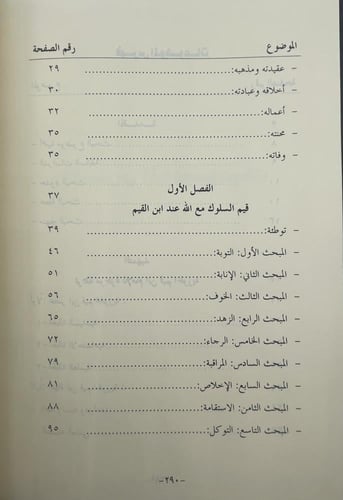 الموضوع رقم الصفحة
- عقيدته ومذهبه: ٢٩
- أخلاقه وعبادته: ٣٠
- أعماله: ٣٢
- محنته: ٣٥
- وفاته: ٣٥
الفصل الأول
قيم السلوك مع الله عند ابن القيم ٣٧
- توطئة: ٣٩
- المبحث الأول: التوبة: ٤٦
- المبحث الثاني: الإنابة: ٥١
- المبحث الثالث: الخوف: ٥٦
- المبحث الرابع: الزهد: ٦٥
- المبحث الخامس: الرجاء: ٧٢
- المبحث السادس: المراقبة: ٧٩
- المبحث السابع: الإخلاص: ٨١
- المبحث الثامن: الاستقامة: ٨٨
- المبحث التاسع: التوكل: ٩٥
-٢٩٠-